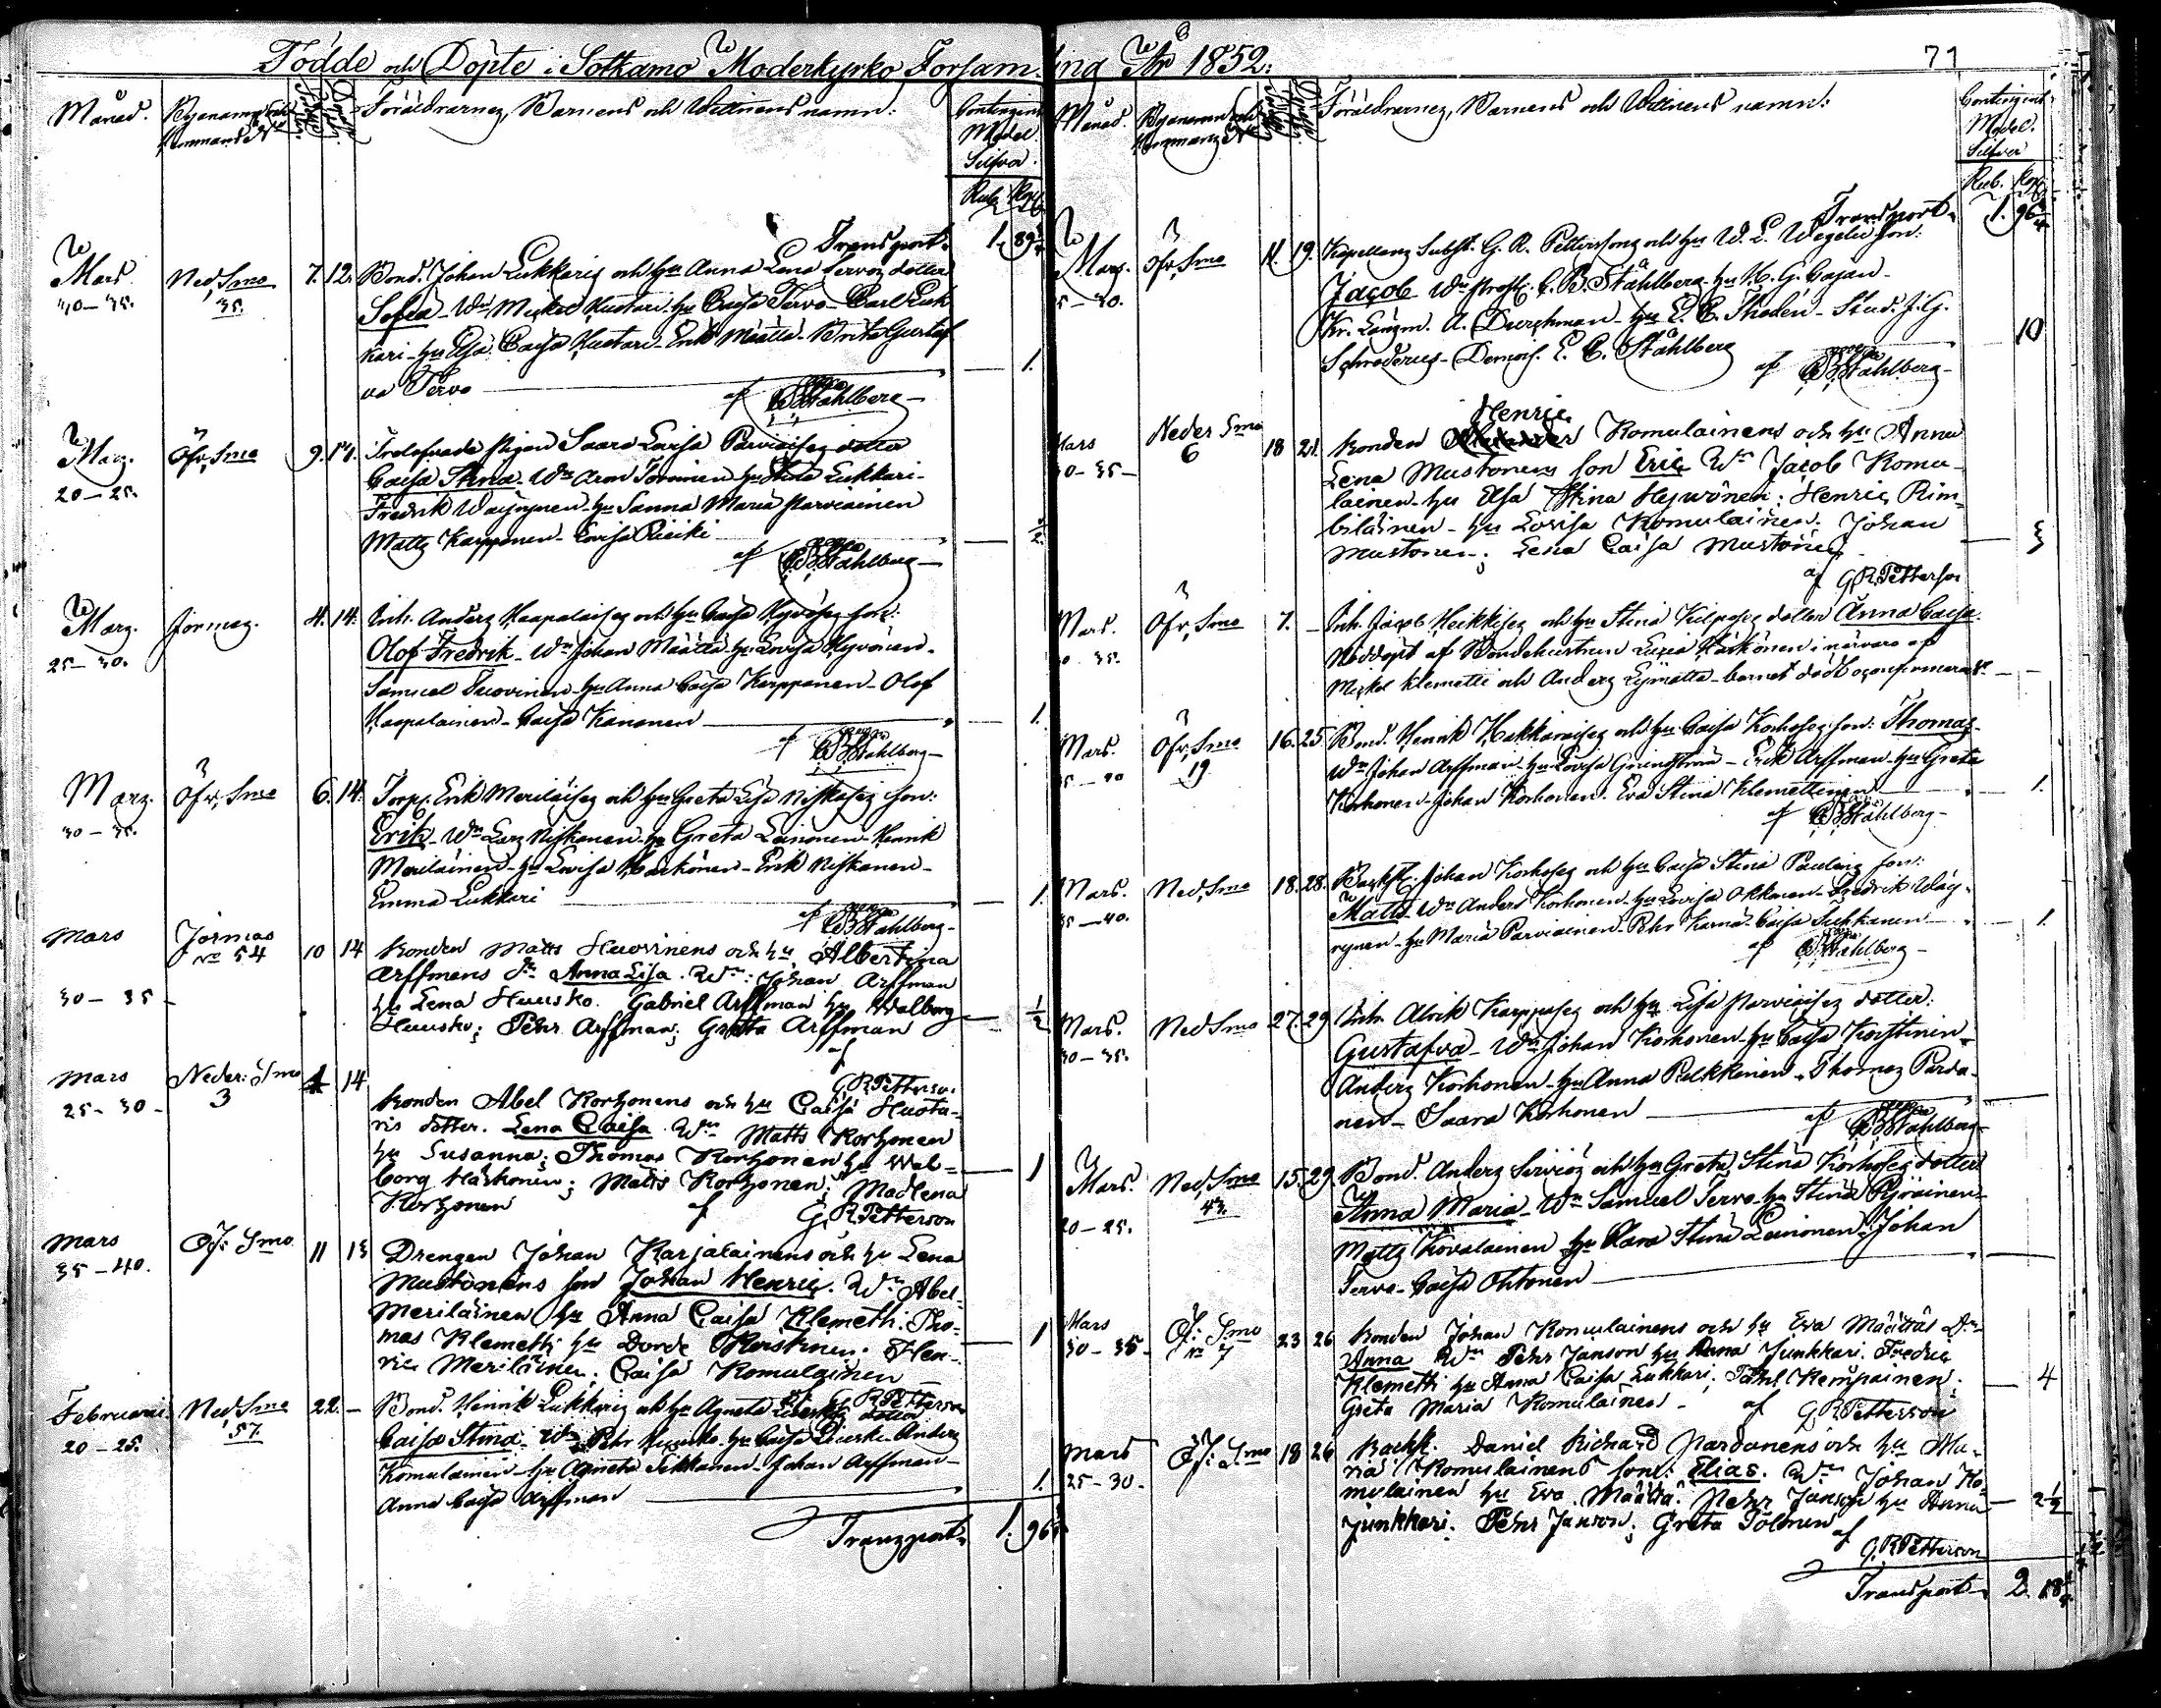 Födde och Döpte i Sotkamo Moderkyrko Församling År 1852.
71
Månad.
Byanamn och
Hemmans No
Föräldrarnes, Barnens och Wittnens namn:
Contingent
Medel.
Silfver.
Rub. Kop.
Transport. 1. 89
Mars
30-35.
Ned. Smo
35.
7. 12.
Bond. Johan Lukkaris och hu Anna Lena Servos dotter
Sofia Wn Mickel Hustari hu Caisa Tervo Carl Luk
kari hu Elsa Caisa Hustari Erik Määttä Brita Gustaf
va Tervo
1.
af C B Ståhlberg
Mars.
20-25.
Öfv. Smo
9. 14.
Trolofvade pigan Saara Lovisa Parviaises dotter
Caisa Stina. Wn Aron Torvinen hu Stina Lukkari
Fredrik Wäyrynen hu Sanna Maria Parviainen
Matts Karppanen Lovisa Piiki
1/2
af C B Ståhlberg
Mars.
25-30.
Jormas.
4. 14.
Inh. Anders Haapalaises och hu Caisa Hyvöses son:
Olof Fredrik Wn Johan Määttä hu Lovisa Hyvönen
Samuel Tuovinen hu Anna Caisa Karppanen Olof
Haapalainen Caisa Kananen
1.
af C B Ståhlberg
Mars.
30-35.
Öfv. Smo
6. 14.
Torp. Erik Meriläises och hu Greta Lisa Niskases son:
Erik Wn Lars Niskanen hu Greta Leinonen Henrik
Meriläinen hu Lovisa Härkönen Erik Niskanen
Emma Lukkari
1.
af C B Ståhlberg
Mars
30-35
Jormas
No 54
10 14
Bonden Matts Huovinens och hu Albertina
Arffmans Dr Anna Lisa. Wn: Johan Arffman
hu Lena Huusko. Gabriel Arffman hu Walborg
Huusko; Pehr Arffman; Greta Arffman
1/2
af
G R Petterson
Mars
25-30
Neder: Smo
3
14
Bonden Abel Korhonens och hu Caisa Husta-
ris dotter. Lena Caisa. Wn Matts Korhonen
hu Susanna; Thomas Korhonen hu Wal-
borg Härkönen; Matts Korhonen; Madlena
Korhonen
1
af G. R. Petterson
Mars
35-40.
Öf: Smo
11
Drengen Johan Karjalainens och hu Lena
Mustonens son Johan Henric. Wn Abel
Meriläinen hu Anna Caisa Klemetti. Tho-
mas Klemetti hu Dorde Keiskinen. Hen-
ric Meriläinen; Caisa Romulainen
1
af G R Petterson
Februari
20-25.
Ned. Smo
57.
22.
Bond. Henrik Lukkaris och hu Agneta dotter
Caisa Stina Wn Pehr Huusko hu Caisa Anders
Komulainen hu Agneta Tikkanen Johan Arffman
Anna Caisa Arffman
1.
Transport 1. 96
Månad.
Byanamn och
Hemmans No
Föräldrarnes, Barnens och Wittnens namn:
Contingent
Medel.
Silfver
Rub. Kop
Transport. 1. 96
Mars.
Öfv. Smo
11. 19.
Kapellans Subst. G. R. Pettersons och hu W. L. Wegelii son:
Jacob Wn Prost. C. B. Ståhlberg hu H. G. Cajan
Kr. Länsm. A. Durchman hu E. C. Thodén Stud. J. G.
Schroderus Demois. L. C. Ståhlberg
10
af C B Ståhlberg
Mars
30-35
Neder Smo
6
18 21.
Henric
Bonden Komulainens och hu Anna
Lena Mustonens son Eric Wn Jacob Komu-
lainen hu Elsa Stina Hyvönen; Henric Rim-
biläinen hu Lovisa Komulainen. Johan
Mustonen; Lena Caisa Mustonen
3
af G R Petterson
Mars.
30-35.
Öfv. Smo
7.
Inh. Jacob Heikkises och hu Stina Kilposes dotter Anna Caisa.
Nöddöpt af Bondehustrun Luisa Härkönen i närvaro af
Mickel Klemetti och Anders Lijmatta barnet dödt oconfirmeradt
Mars.
Öfv. Smo
19
16. 25
Bond. Henrik Hakkaraises och hu Caisa Korhoses son: Thomas
Wn Johan Arffman hu Lovisa Grönström Erik Arffman hu Greta
Korhonen Johan Korhonen. Eva Stina Klemettinen
1.
af C B Ståhlberg
Mars.
35-40.
Ned. Smo
18. 28.
Backst. Johan Korhoses och hu Caisa Stina Paulins son:
Matts Wn Anders Korhonen hu Lovisa Okkonen Fredrik Wäy-
rynen hu Maria Parviainen Pehr Karna Caisa Sukkanen
1.
af C B Ståhlberg
Mars.
30-35.
Ned Smo
27. 29
Inh. Alrik Karppases och hu Lisa Parviaises dotter:
Gustafva Wn Johan Korhonen hu Caisa Korstinen
Anders Korhonen hu Anna Pulkkinen Thomas Parda-
nen Saara Korhonen
af C B Ståhlberg
Mars.
20-25.
Ned. Smo
43.
15. 29
Bond. Anders Servios och hu Greta Stina Korhoses dotter
Anna Maria Wn Samuel Tervo hu Stina Pyöriäinen
Matts Kovalainen hu Clara Stina Leinonen Johan
Tervo Caisa Ohtonen
Mars
30-35
Öf: Smo
No 7
23 26
Bonden Johan Komulainens och hu Eva Määttäs Dr
Anna Wn Pehr Janson hu Anna Junkkari. Fredric
Klemetti hu Anna Caisa Lukkari; Påhl Kemppainen;
Greta Maria Komulainen
4
af G R Petterson
Mars
25-30.
Öf: Smo
18 26
Backst. Daniel Richard Pardanens och hu Ma-
ria Komulainens son: Elias. Wn Johan Ko-
mulainen hu Eva Määttä. Pehr Janson hu Anna
Junkkari. Pehr Janson; Greta Tolonen
2 1/2
af
G. R Petterson
Transport 2. 18